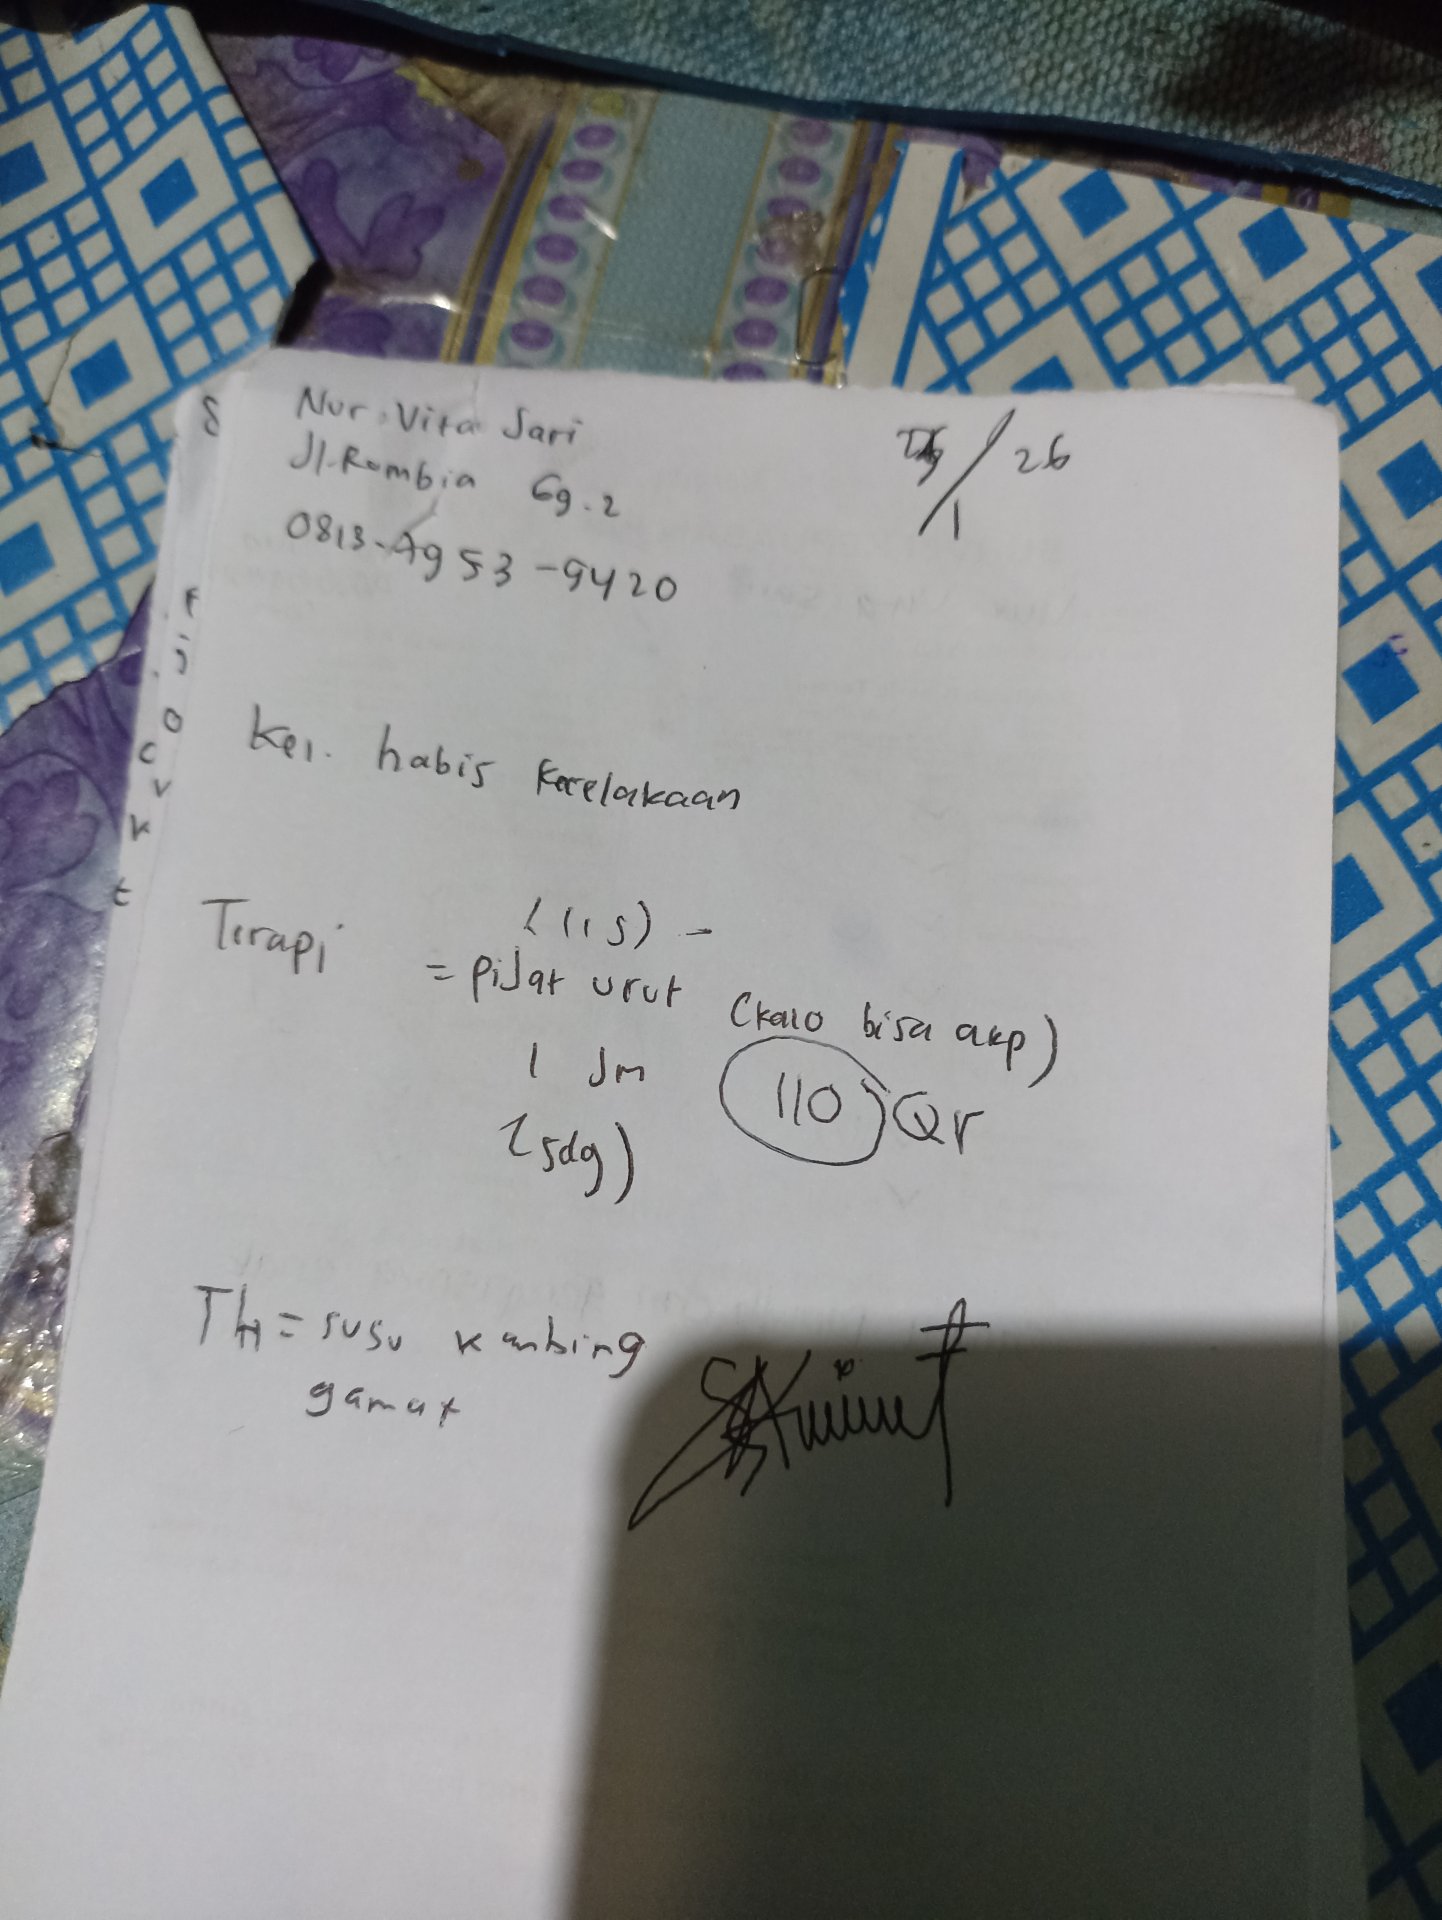 Nur. Vita Sari
Jl. Rumbia Gg. 2
0813-4953-9420
/ 26
1
Kel. habis kecelakaan
Terapi
(115) -
= piJat urut (kalo bisa akp)
1 Jm 110 Qr
(sdg)
TH = susu kambing
gamat